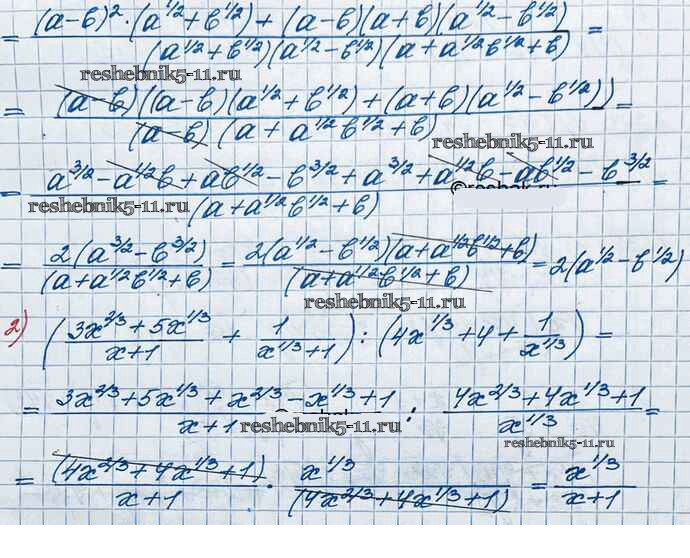 = (a-b)²·(a^1/2+b^1/2)+(a-b)(a+b)(a^1/2-b^1/2) / (a^1/2+b^1/2)(a^1/2-b^1/2)(a+a^1/2b^1/2+b) =
reshebnik5-11.ru
= (a-b)((a-b)(a^1/2+b^1/2)+(a+b)(a^1/2-b^1/2)) / (a-b)(a+a^1/2b^1/2+b) =
reshebnik5-11.ru
= a^3/2-a^1/2b+ab^1/2-b^3/2+a^3/2+a^1/2b-ab^1/2-b^3/2 / (a+a^1/2b^1/2+b) =
reshebnik5-11.ru
= 2(a^3/2-b^3/2) / (a+a^1/2b^1/2+b) = 2(a^1/2-b^1/2)(a+a^1/2b^1/2+b) / (a+a^1/2b^1/2+b) = 2(a^1/2-b^1/2)
reshebnik5-11.ru
2) (3x^2/3+5x^1/3 / x+1 + 1 / x^1/3+1) : (4x^1/3+4+1/x^1/3) =
= 3x^2/3+5x^1/3+x^2/3-x^1/3+1 / x+1 : 4x^2/3+4x^1/3+1 / x^1/3 =
reshebnik5-11.ru
reshebnik5-11.ru
= (4x^2/3+4x^1/3+1) / x+1 · x^1/3 / (4x^2/3+4x^1/3+1) = x^1/3 / x+1